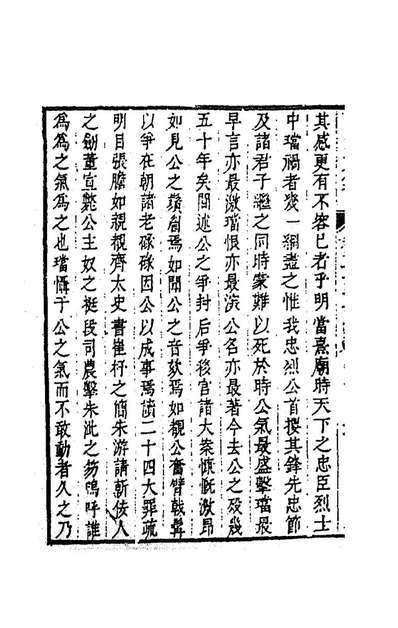 其感更有不容已者乎明當熹廟時天下之忠臣烈士
中璫禍者幾一網盡之惟我忠烈公首攖其鋒先忠節
及諸君子繼之同時蒙難以死於時公氣最盛擊璫最
早言亦最激璫恨亦最深公名亦最著今去公之歿幾
五十年矣聞述公之爭封后爭移宮諸大案慷慨激昂
如見公之鬚眉焉如聞公之音欬焉如覩公奮臂戟髯
以爭在朝諸老碌碌因公以成事焉讀二十四大罪疏
明目張膽如親覩齊太史書崔杼之簡朱游請斬佞人
之劍董宣斃公主奴之梃段司農擊朱泚之笏嗚呼誰
為為之氣為之也璫懾于公之氣而不敢動者久之乃